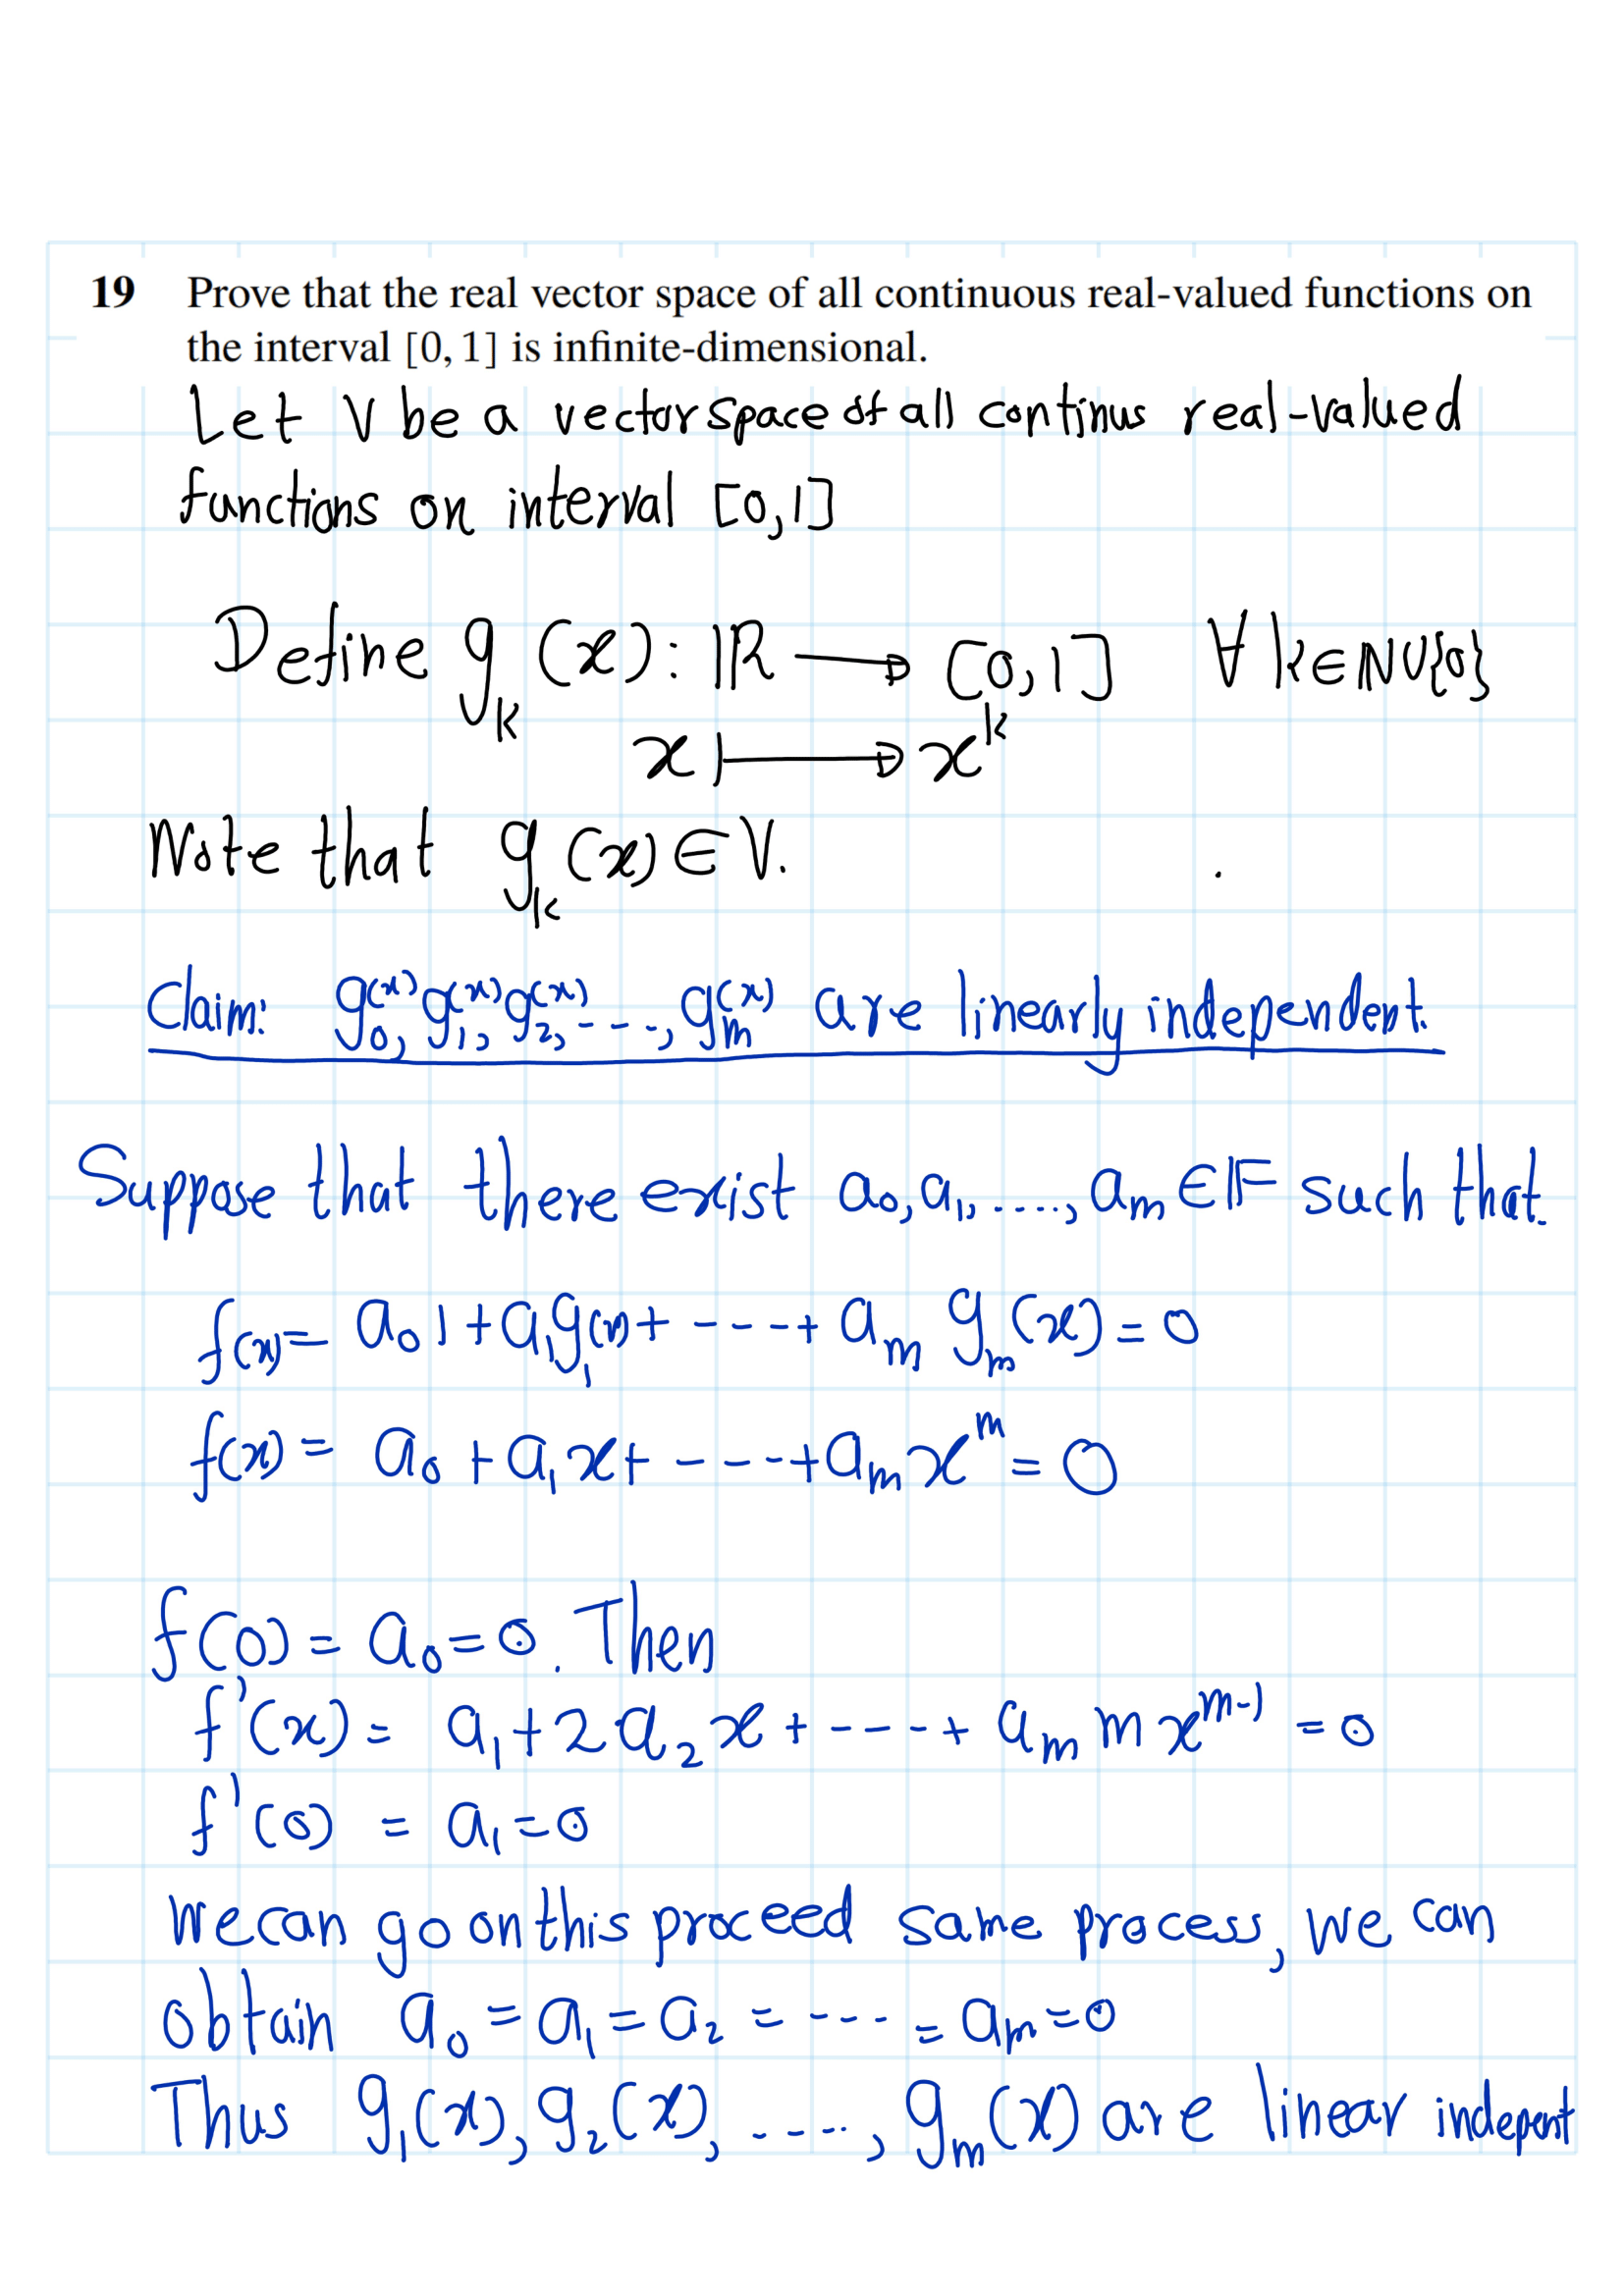 19 Prove that the real vector space of all continuous real-valued functions on
the interval [0, 1] is infinite-dimensional.
Let V be a vector space of all continus real-valued
functions on interval [0,1]
Define g_k(x): ℝ → [0,1] ∀ k∈ℕ∪{0}
x ↦ x^k
Note that g_k(x) ∈ V.
Claim: g_0(x), g_1(x), g_2(x), ----, g_m(x) are linearly independent.
Suppose that there exist a_0, a_1, ...., a_m ∈ 𝔽 such that.
f(x) = a_0 1 + a_1 g_1(x) + ---- + a_m g_m(x) = 0
f(x) = a_0 + a_1 x + ---- + a_m x^m = 0
f(0) = a_0 = 0. Then
f'(x) = a_1 + 2a_2 x + ---- + a_m m x^{m-1} = 0
f'(0) = a_1 = 0
We can go on this proceed same process, we can
obtain a_0 = a_1 = a_2 = ---- = a_m = 0
Thus g_1(x), g_2(x), ....., g_m(x) are linear indepent